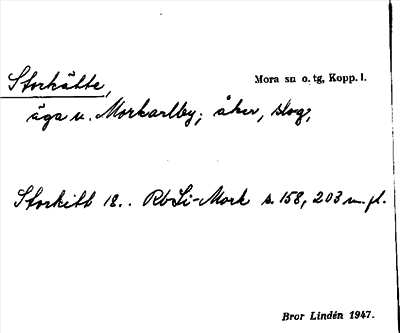 Storkätte, Mora sn o. tg, Kopp. l.
äga u. Morkarlby; åker, slog;
Storkitt 18.. RbLi-Mork s. 158, 203 m. fl.
Bror Lindén 1947.